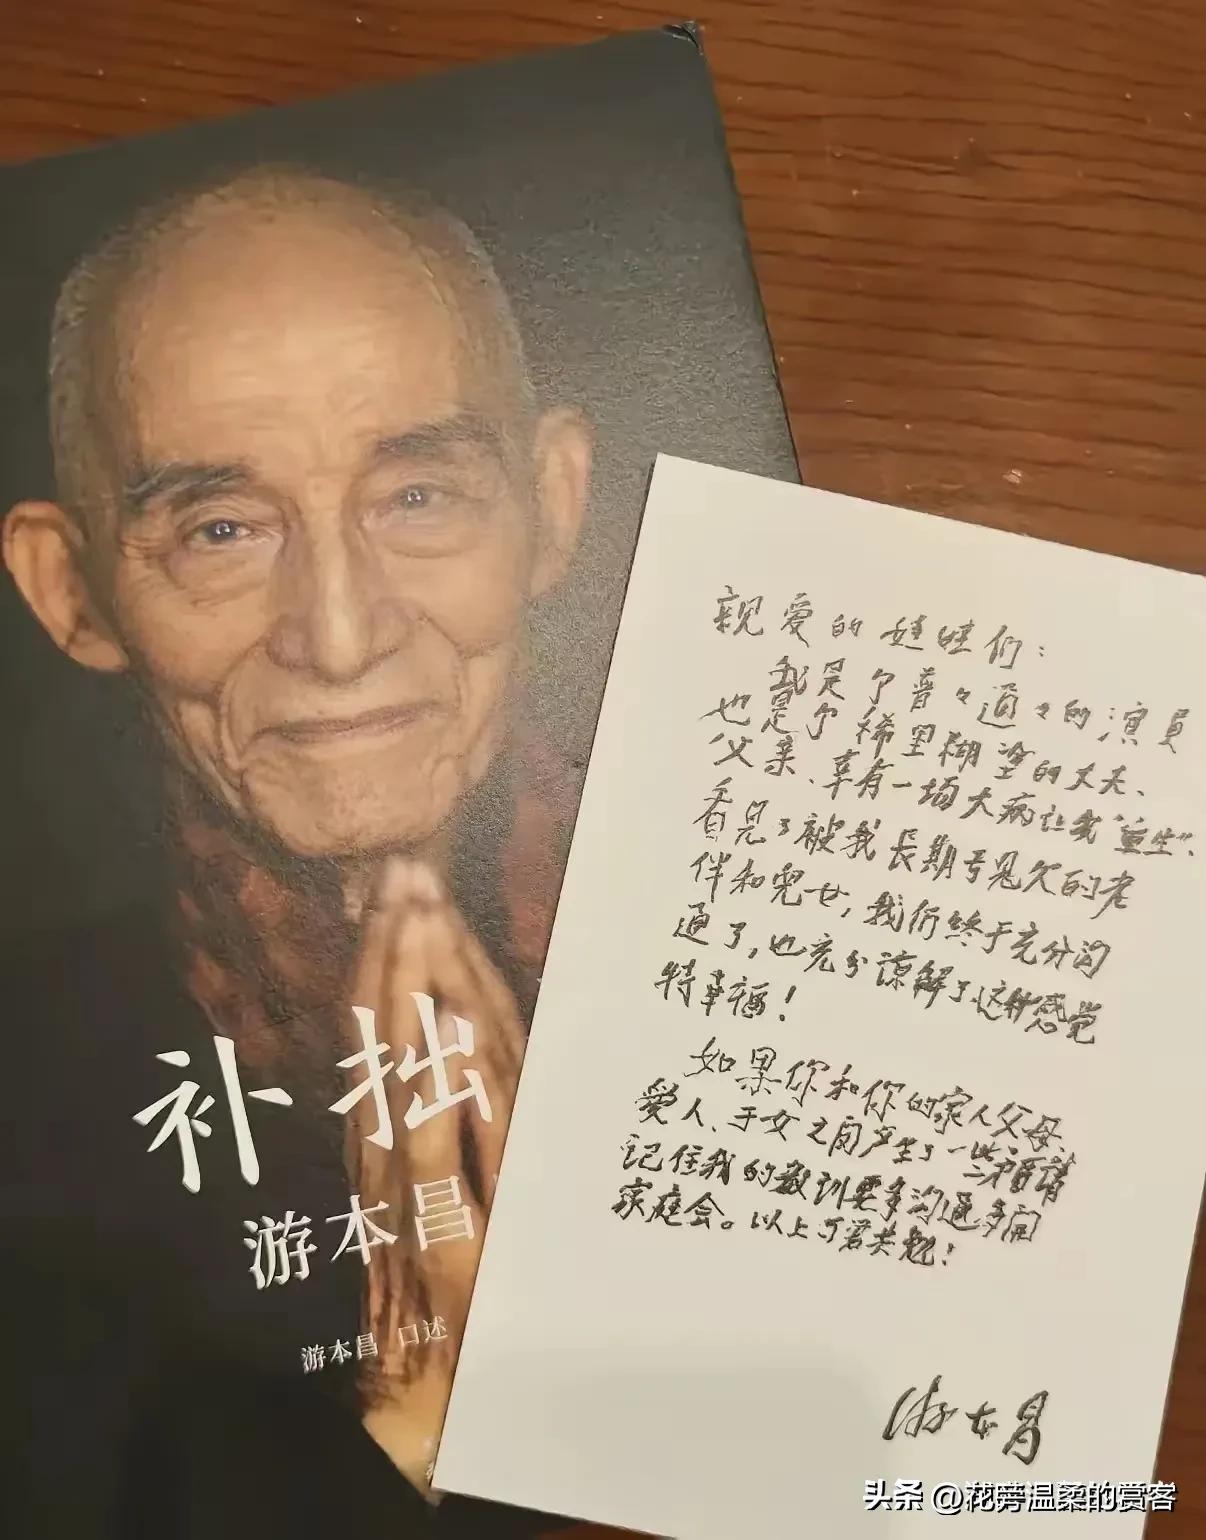 补拙
游本昌
游本昌 口述
亲爱的娃娃们：
我是个普々通々的演员
也是个稀里糊塗的丈夫、
父亲、幸有一场大病让我“重生”、
看見了被我長期亏見欠的老
伴和兒女，我们终于充分沟
通了，也充分谅解了这种感觉
特幸福！
如果你和你的家人父母、
愛人、子女之间产生了一些矛盾请
记住我的教训要多沟通多開
家庭会。以上与君共勉！
游本昌
头条 @花旁温柔的赏客